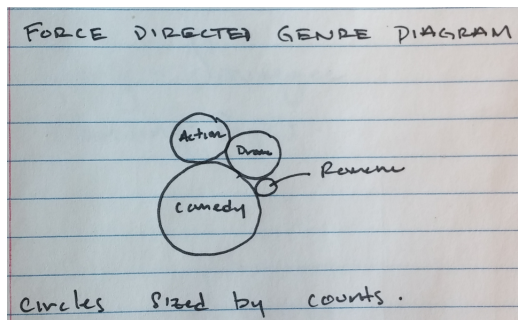 FORCE DIRECTED GENRE DIAGRAM
Action
Drama
Romance
comedy
circles sized by counts.